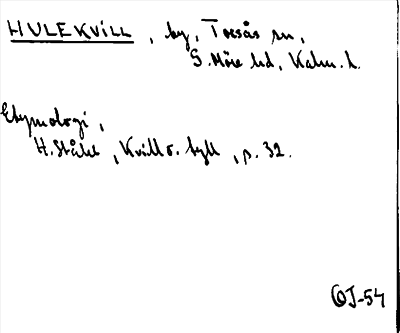 HULEKVILL, by, Torsås sn,
S. Möre hd, Kalm. l.
Etymologi,
H. Ståhl, Kvill o. tyll, p. 32.
OJ-54